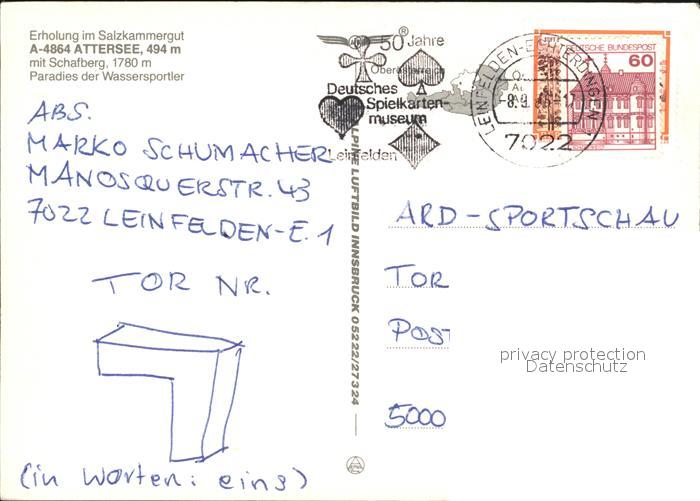 Erholung im Salzkammergut
A-4864 ATTERSEE, 494 m
mit Schafberg, 1780 m
Paradies der Wassersportler
ABS.
MARKO SCHUMACHER
MANOSQUERSTR. 43
7022 LEINFELDEN-E. 1
TOR NR.
1
(in Worten: eins)
ALPINE LUFTBILD INNSBRUCK 05222/27324
50 Jahre
Oberösterreich
Deutsches
Spielkarten-
museum
Leinfelden
LEINFELDEN-ECHTERDINGEN
7022
DEUTSCHE BUNDESPOST
60
ARD-SPORTSCHAU
TOR
POST
5000
privacy protection
Datenschutz